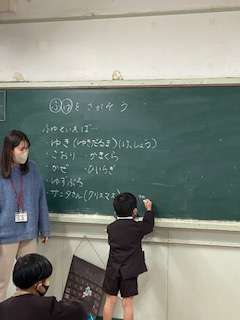 ふゆをさがそう
ふゆといえば…
・ゆき(ゆきだるま)(けっしょう)
・こおり ・かまくら
・かぜ ・ひいらぎ
・ゆずぶろ
・サンタさん(クリスマス)